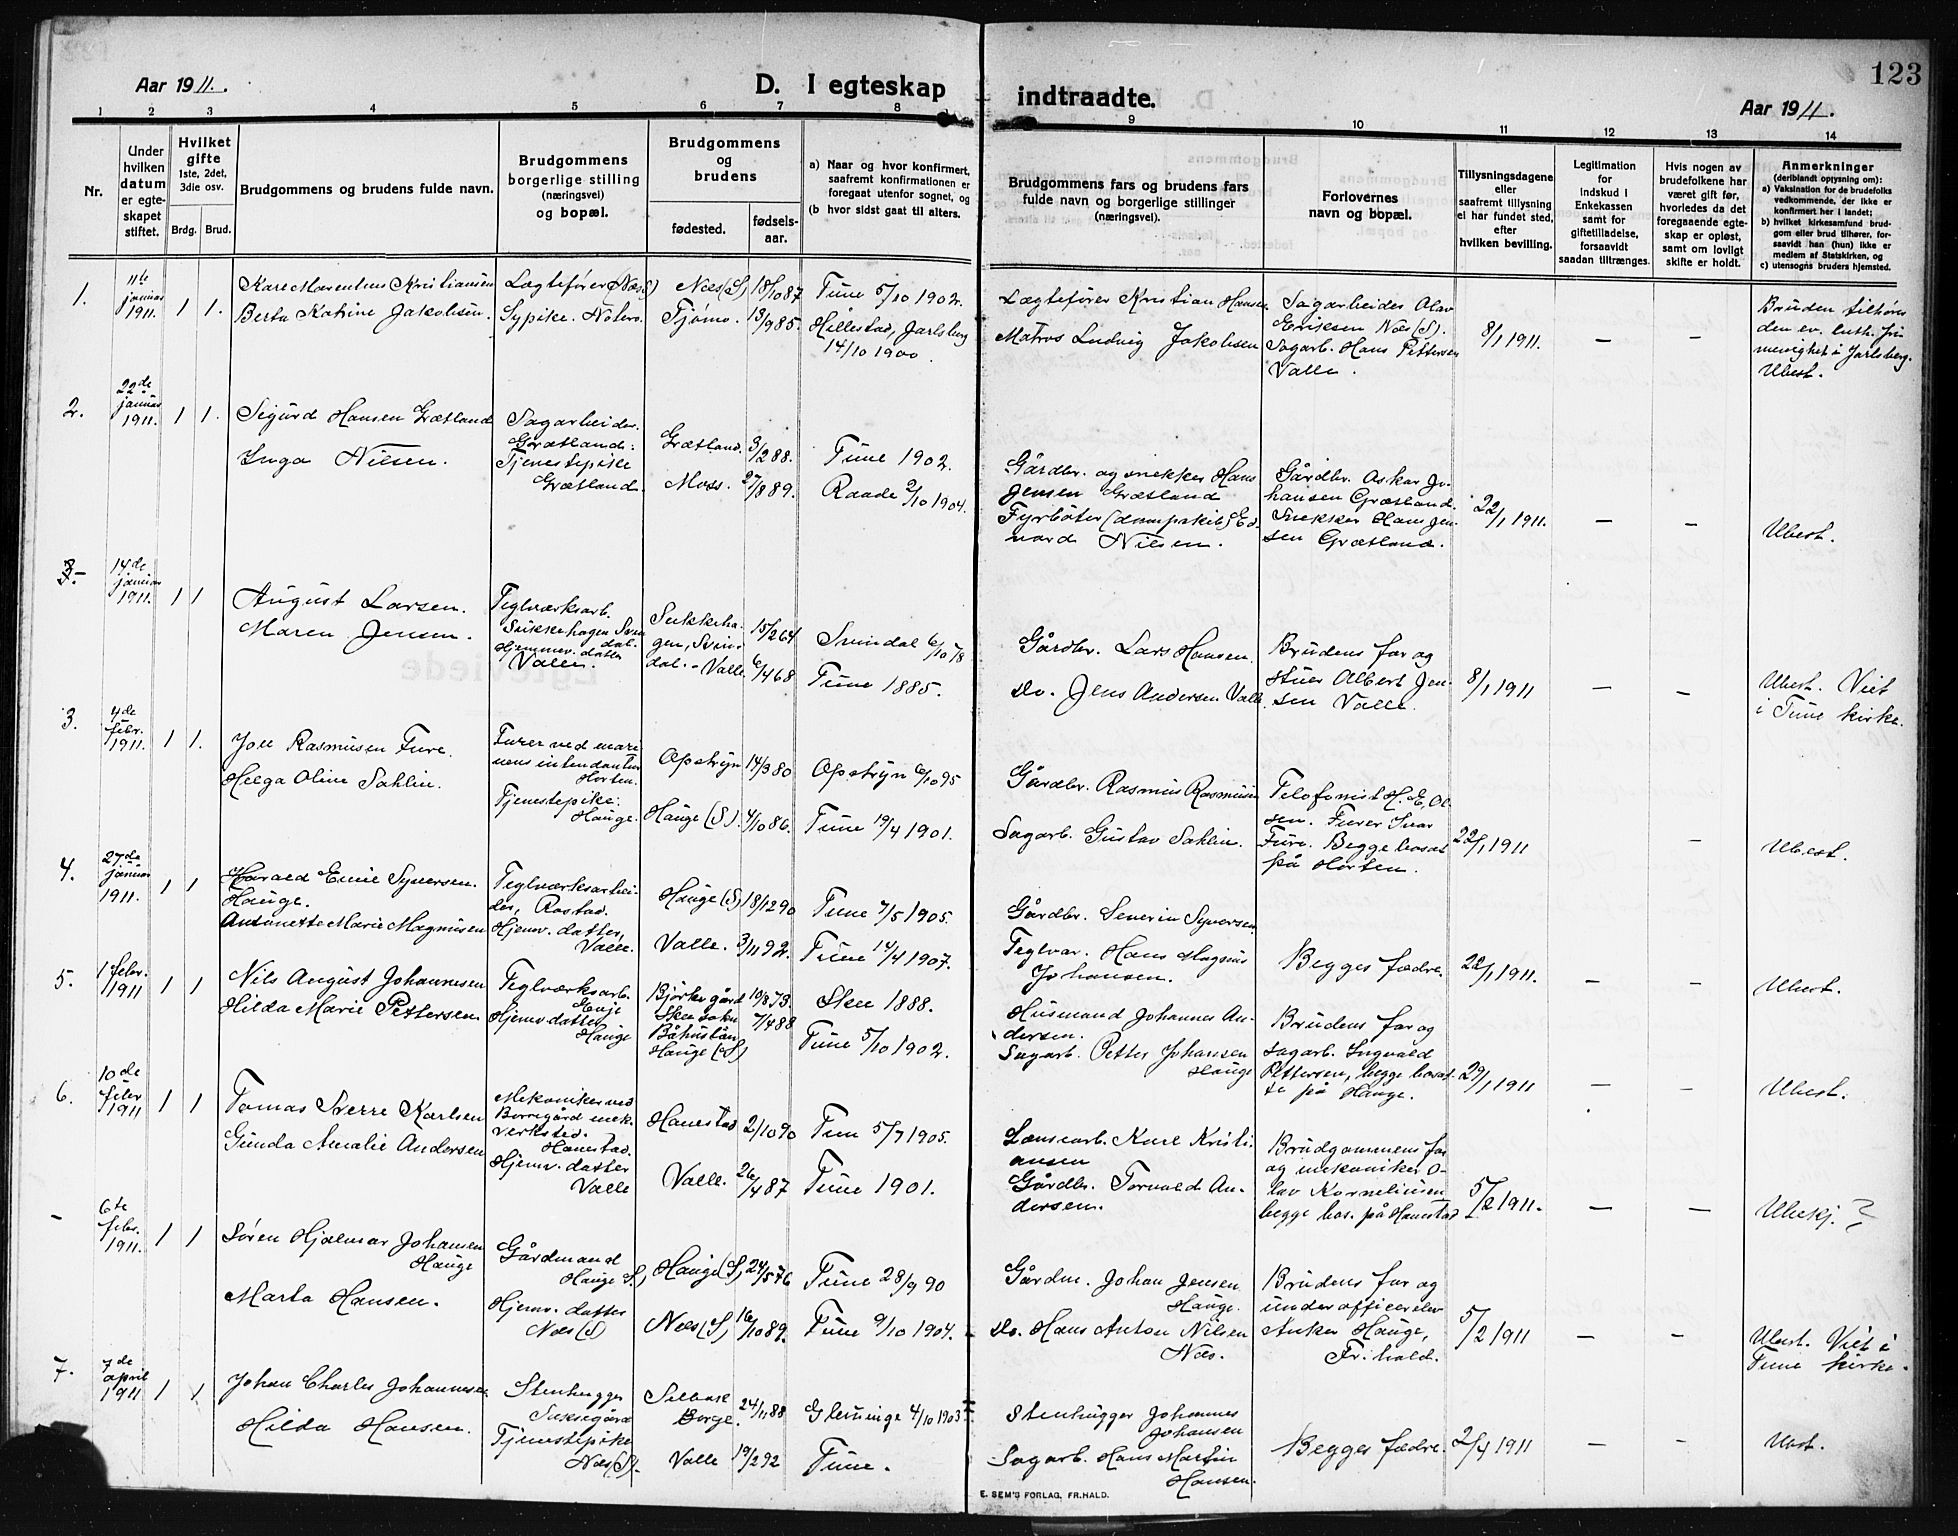 Aar 1911.
D. I egteskap indtraadte.
Aar 1911.
123
1 2 3 4 5 6 7 8 9 10 11 12 13 14
Nr.
Under hvilken datum er egteskapet stiftet.
Hvilket gifte 1ste, 2det, 3die osv.
Brdg. Brud.
Brudgommens og brudens fulde navn.
Brudgommens borgerlige stilling (næringsvei) og bopæl.
Brudgommens og brudens
fødested.
fødselsaar.
a) Naar og hvor konfirmert, saafremt konfirmationen er foregaat utenfor sognet, og
(b hvor sidst gaat til alters.
Brudgommens fars og brudens fars fulde navn og borgerlige stillinger (næringsvei).
Forlovernes navn og bopæl.
Tillysningsdagene eller saafremt tillysning ei har fundet sted, efter hvilken bevilling.
Legitimation for indskud i Enkekassen samt for giftetilladelse, forsaavidt saadan tiltrænges.
Hvis nogen av brudefolkene har været gift før, hvorledes da det foregaaende egteskap er opløst, samt om lovligt skifte er holdt.
Anmerkninger (deriblandt oplysning om): a) Vaksination for de brudefolks vedkommende, der ikke er konfirmert her i landet; b) hvilket kirkesamfund brudgom eller brud tilhører, forsaavidt han (hun) ikke er medlem af Statskirken, og c) utensogns bruders hjemsted.
1.
11te januar 1911.
1 1.
Kare Marentius Kristiansen
Berta Katrine Jakobsen.
Lægtefører (Næs S)
Sypike. Nøtterø.
Næs (S) 18/10 87
Tjømø. 13/9 85.
Tune 5/10 1902.
Hillestad, Jarlsberg
14/10 1900.
Lægtefører Kristian Hansen
Matros Ludvig Jakobsen
Sagarbeider Olav
Eriksen Næs (S).
Sagarb. Hans Pettersen
Valle.
8/1 1911.
— —
Bruden tilhører
den ev. luth. fri
menighet i Jarlsberg.
Ubest.
2.
22de januar 1911.
1 1.
Sigurd Hansen Grætland
Inga Nilsen.
Sagarbeider.
Grætland.
Tjenestepike
Grætland.
Grætland. 3/2 88.
Moss. 27/8 89.
Tune 1902.
Raade 2/10 1904.
Gårdbr. og snekker Hans
Jensen Grætland
Fyrbøter (dampskib) Ed-
vard Nilsen.
Gårdbr. Oskar Jo-
hansen Grætland.
Snekker Hans Jen-
sen Grætland.
22/1 1911.
— —
Ubest.
3.
14de januar 1911.
1 1
August Larsen.
Maren Jensen.
Teglværksarb.
Sukkehagen Svin
dal.
Hjemmev. datter
Valle.
Sukkeha-
gen, Svin-
dal. 15/2 64
Valle 6/4 68
Svindal 6/10 78
Tune 1885.
Gårdbr. Lars Hansen.
do. Jens Andersen Valle
Brudens far og
Stuer Albert Jen-
sen Valle.
8/1 1911
— —
Ubest. Viet
i Tune kirke.
3.
4de febr. 1911.
1 1.
Joel Rasmusen Fure.
Helga Oline Sahlin.
Furer ved mari
nens intendantur
Horten.
Tjenestepike.
Hauge.
Opstryn 14/3 80
Hauge (S). 4/10 86.
Opstryn 6/10 95
Tune 19/4 1901.
Gårdbr. Rasmus Rasmusen
Sagarb. Gustav Sahlin.
Telefonist H. E. Ol
sen. Furer Ivar
Fure. Begge bosat
på Horten.
22/1 1911
—
Ubest.
4.
27de januar 1911.
1 1
Harald Emil Syversen.
Hauge.
Antonette Marie Magnusen
Teglværksarbei-
der, Rostad.
Hjemv. datter,
Valle.
Hauge (S) 18/12 90
Valle. 3/11 92.
Tune 7/5 1905.
Tune 14/4 1907.
Gårdbr. Severin Syversen.
Teglvar. Hans Magnus
Johansen.
Begges fædre.
22/1 1911.
— —
Ubest.
5.
1 febr. 1911
1 1
Nils August Johannesen
Hilda Marie Pettersen
Teglværksarb.
Enje
Hjemv. datter
Hauge
Bjørkegård
Skee sokn
Båhuslän 19/8 73.
Hauge (S) 7/4 88
Skee 1888.
Tune 5/10 1902.
Husmand Johannes An-
dersen.
Sagarb. Petter Johansen
Hauge
Brudens far og
sagarb. Ingvald
Pettersen, begge bosat-
te på Hauge.
29/1 1911
— —
Ubest.
6.
10de febr 1911
1 1
Tomas Sverre Karlsen
Gunda Amalie Andersen
Mekaniker ved
Borregård mek.
verksted.
Hanestad.
Hjemv. datter
Valle
Hanestad 2/10 90
Valle. 26/4 87
Tune 5/7 1905.
Tune 1901.
Lænsearb. Karl Kristi-
ansen
Gårdbr. Torvald An-
dersen.
Brudgommens far
og mekaniker O-
lav Korneliusen
begge bos. på Hanestad
5/2 1911.
— —
Ubekj. ?
–
6te febr. 1911.
1 1
Søren Hjalmar Johansen
Hauge
Marta Hansen.
Gårdmand
Hauge S.
Hjemv. datter
Næs (S)
Hauge (S) 24/5 76
Næs (S) 16/10 89.
Tune 28/9 90
Tune 9/10 1904.
Gårdm. Johan Jensen
Hauge.
do. Hans Anton Nilsen
Næs.
Brudens far og
underofficerelev
Anker Hauge,
Fr.hald.
5/2 1911
— —
Ubest. Viet i
Tune kirke.
7.
7de april 1911
1 1
Johan Charles Johannesen
Hilda Hansen.
Stenhugger
Tjenestepike
Næs (S).
Selbak
Borge. 24/11 88
Valle 19/2 92
Glemminge 4/10 1903
Tune.
Stenhugger Johannes
Johansen
Sagarb. Hans Martin
Hansen.
Begges fædre.
2/4 1911
— —
Ubest.
E. SEM'S FORLAG, FR.HALD.